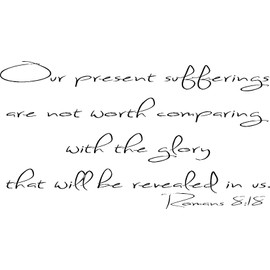 Our present sufferings
are not worth comparing
with the glory
that will be revealed in us.
Romans 8:18